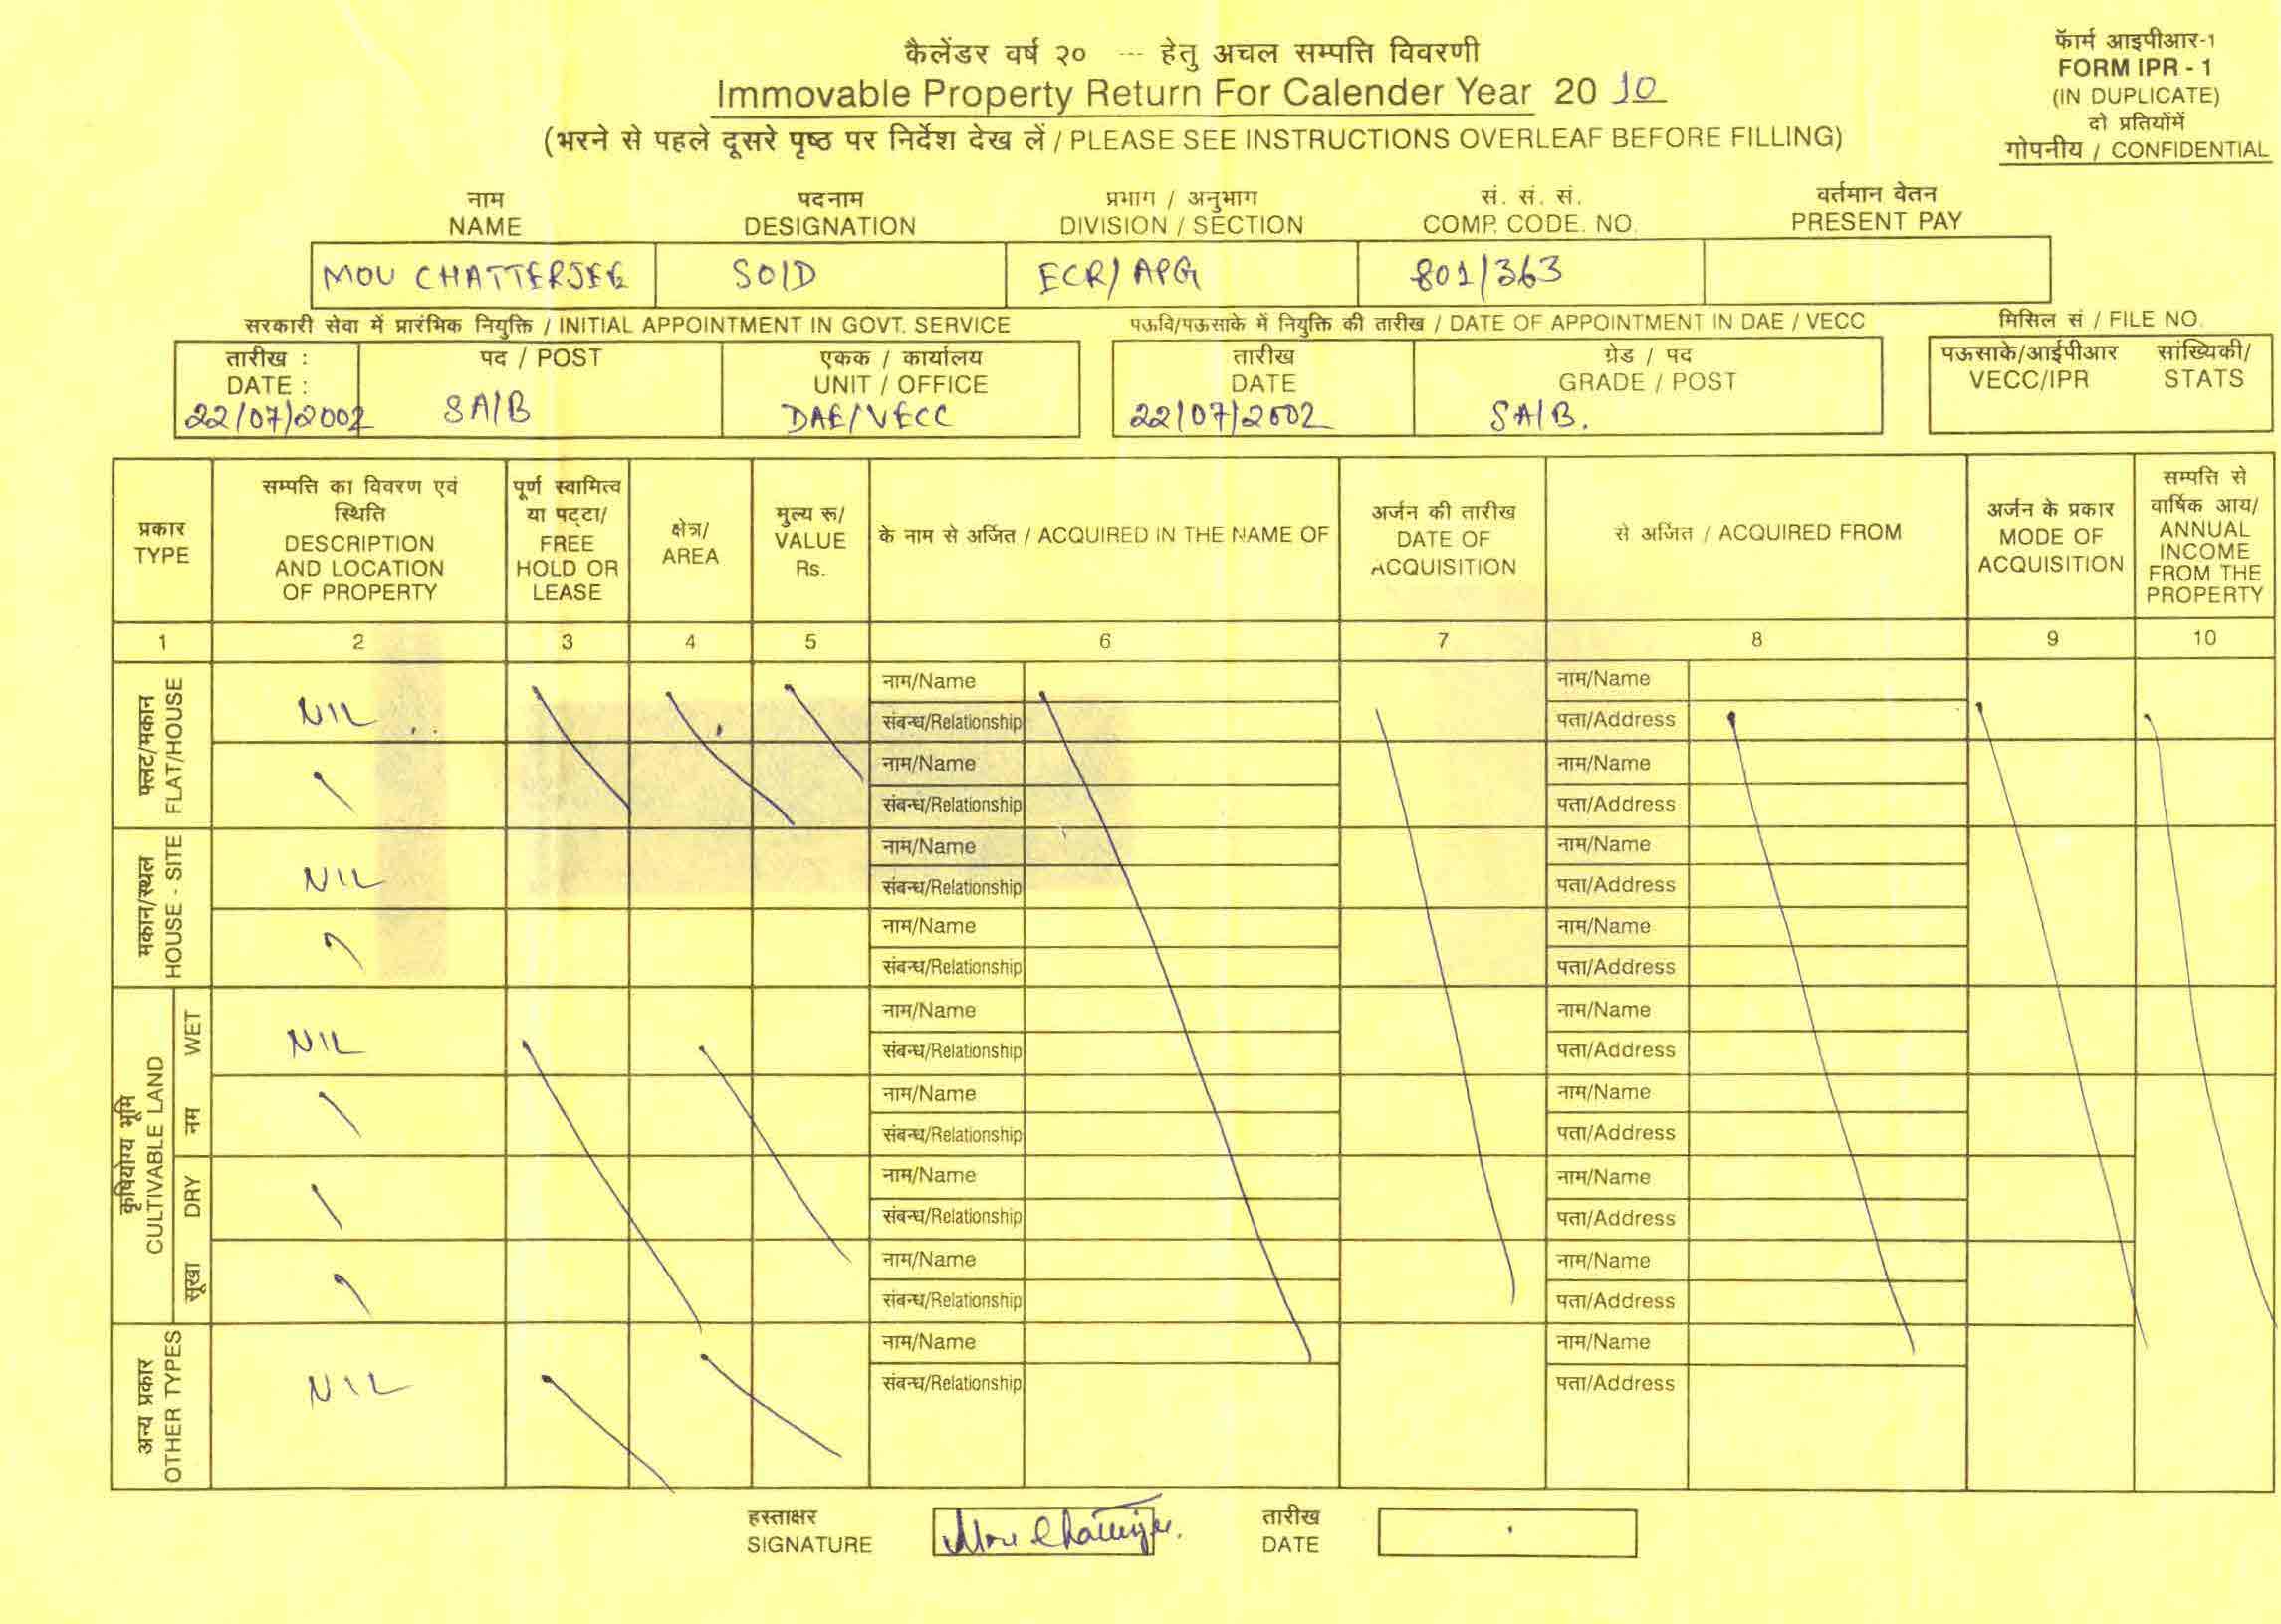 कैलेंडर वर्ष २० --- हेतु अचल सम्पत्ति विवरणी
Immovable Property Return For Calender Year 20 10
(भरने से पहले दूसरे पृष्ठ पर निर्देश देख लें / PLEASE SEE INSTRUCTIONS OVERLEAF BEFORE FILLING)
फॅार्म आइपीआर-1
FORM IPR - 1
(IN DUPLICATE)
दो प्रतियोंमें
गोपनीय / CONFIDENTIAL
नाम पदनाम प्रभाग / अनुभाग सं. सं. सं. वर्तमान वेतन
NAME DESIGNATION DIVISION / SECTION COMP. CODE. NO. PRESENT PAY
MOU CHATTERJEE SO/D ECR/APG 801/363
सरकारी सेवा में प्रारंभिक नियुक्ति / INITIAL APPOINTMENT IN GOVT. SERVICE पऊवि/पऊसाके में नियुक्ति की तारीख / DATE OF APPOINTMENT IN DAE / VECC मिसिल सं / FILE NO.
तारीख : पद / POST एकक / कार्यालय तारीख ग्रेड / पद पऊसाके/आईपीआर सांख्यिकी/
DATE : UNIT / OFFICE DATE GRADE / POST VECC/IPR STATS
22/07/2002 SA/B DAE/VECC 22/07/2002 SA/B.
प्रकार
TYPE
सम्पत्ति का विवरण एवं
स्थिति
DESCRIPTION
AND LOCATION
OF PROPERTY
पूर्ण स्वामित्व
या पट्टा/
FREE
HOLD OR
LEASE
क्षेत्र/
AREA
मुल्य रू/
VALUE
Rs.
के नाम से अर्जित / ACQUIRED IN THE NAME OF
अर्जन की तारीख
DATE OF
ACQUISITION
से अर्जित / ACQUIRED FROM
अर्जन के प्रकार
MODE OF
ACQUISITION
सम्पत्ति से
वार्षिक आय/
ANNUAL
INCOME
FROM THE
PROPERTY
1 2 3 4 5 6 7 8 9 10
फ्लट/मकान
FLAT/HOUSE
NIL
नाम/Name नाम/Name
संबन्ध/Relationship पता/Address
नाम/Name नाम/Name
संबन्ध/Relationship पता/Address
मकान/स्थल
HOUSE - SITE
NIL
नाम/Name नाम/Name
संबन्ध/Relationship पता/Address
नाम/Name नाम/Name
संबन्ध/Relationship पता/Address
कृषियोग्य भूमि
CULTIVABLE LAND
WET
नम
NIL
नाम/Name नाम/Name
संबन्ध/Relationship पता/Address
नाम/Name नाम/Name
संबन्ध/Relationship पता/Address
DRY
सूखा
नाम/Name नाम/Name
संबन्ध/Relationship पता/Address
नाम/Name नाम/Name
संबन्ध/Relationship पता/Address
अन्य प्रकार
OTHER TYPES
NIL
नाम/Name नाम/Name
संबन्ध/Relationship पता/Address
हस्ताक्षर तारीख
SIGNATURE Mou Chatterjee. DATE